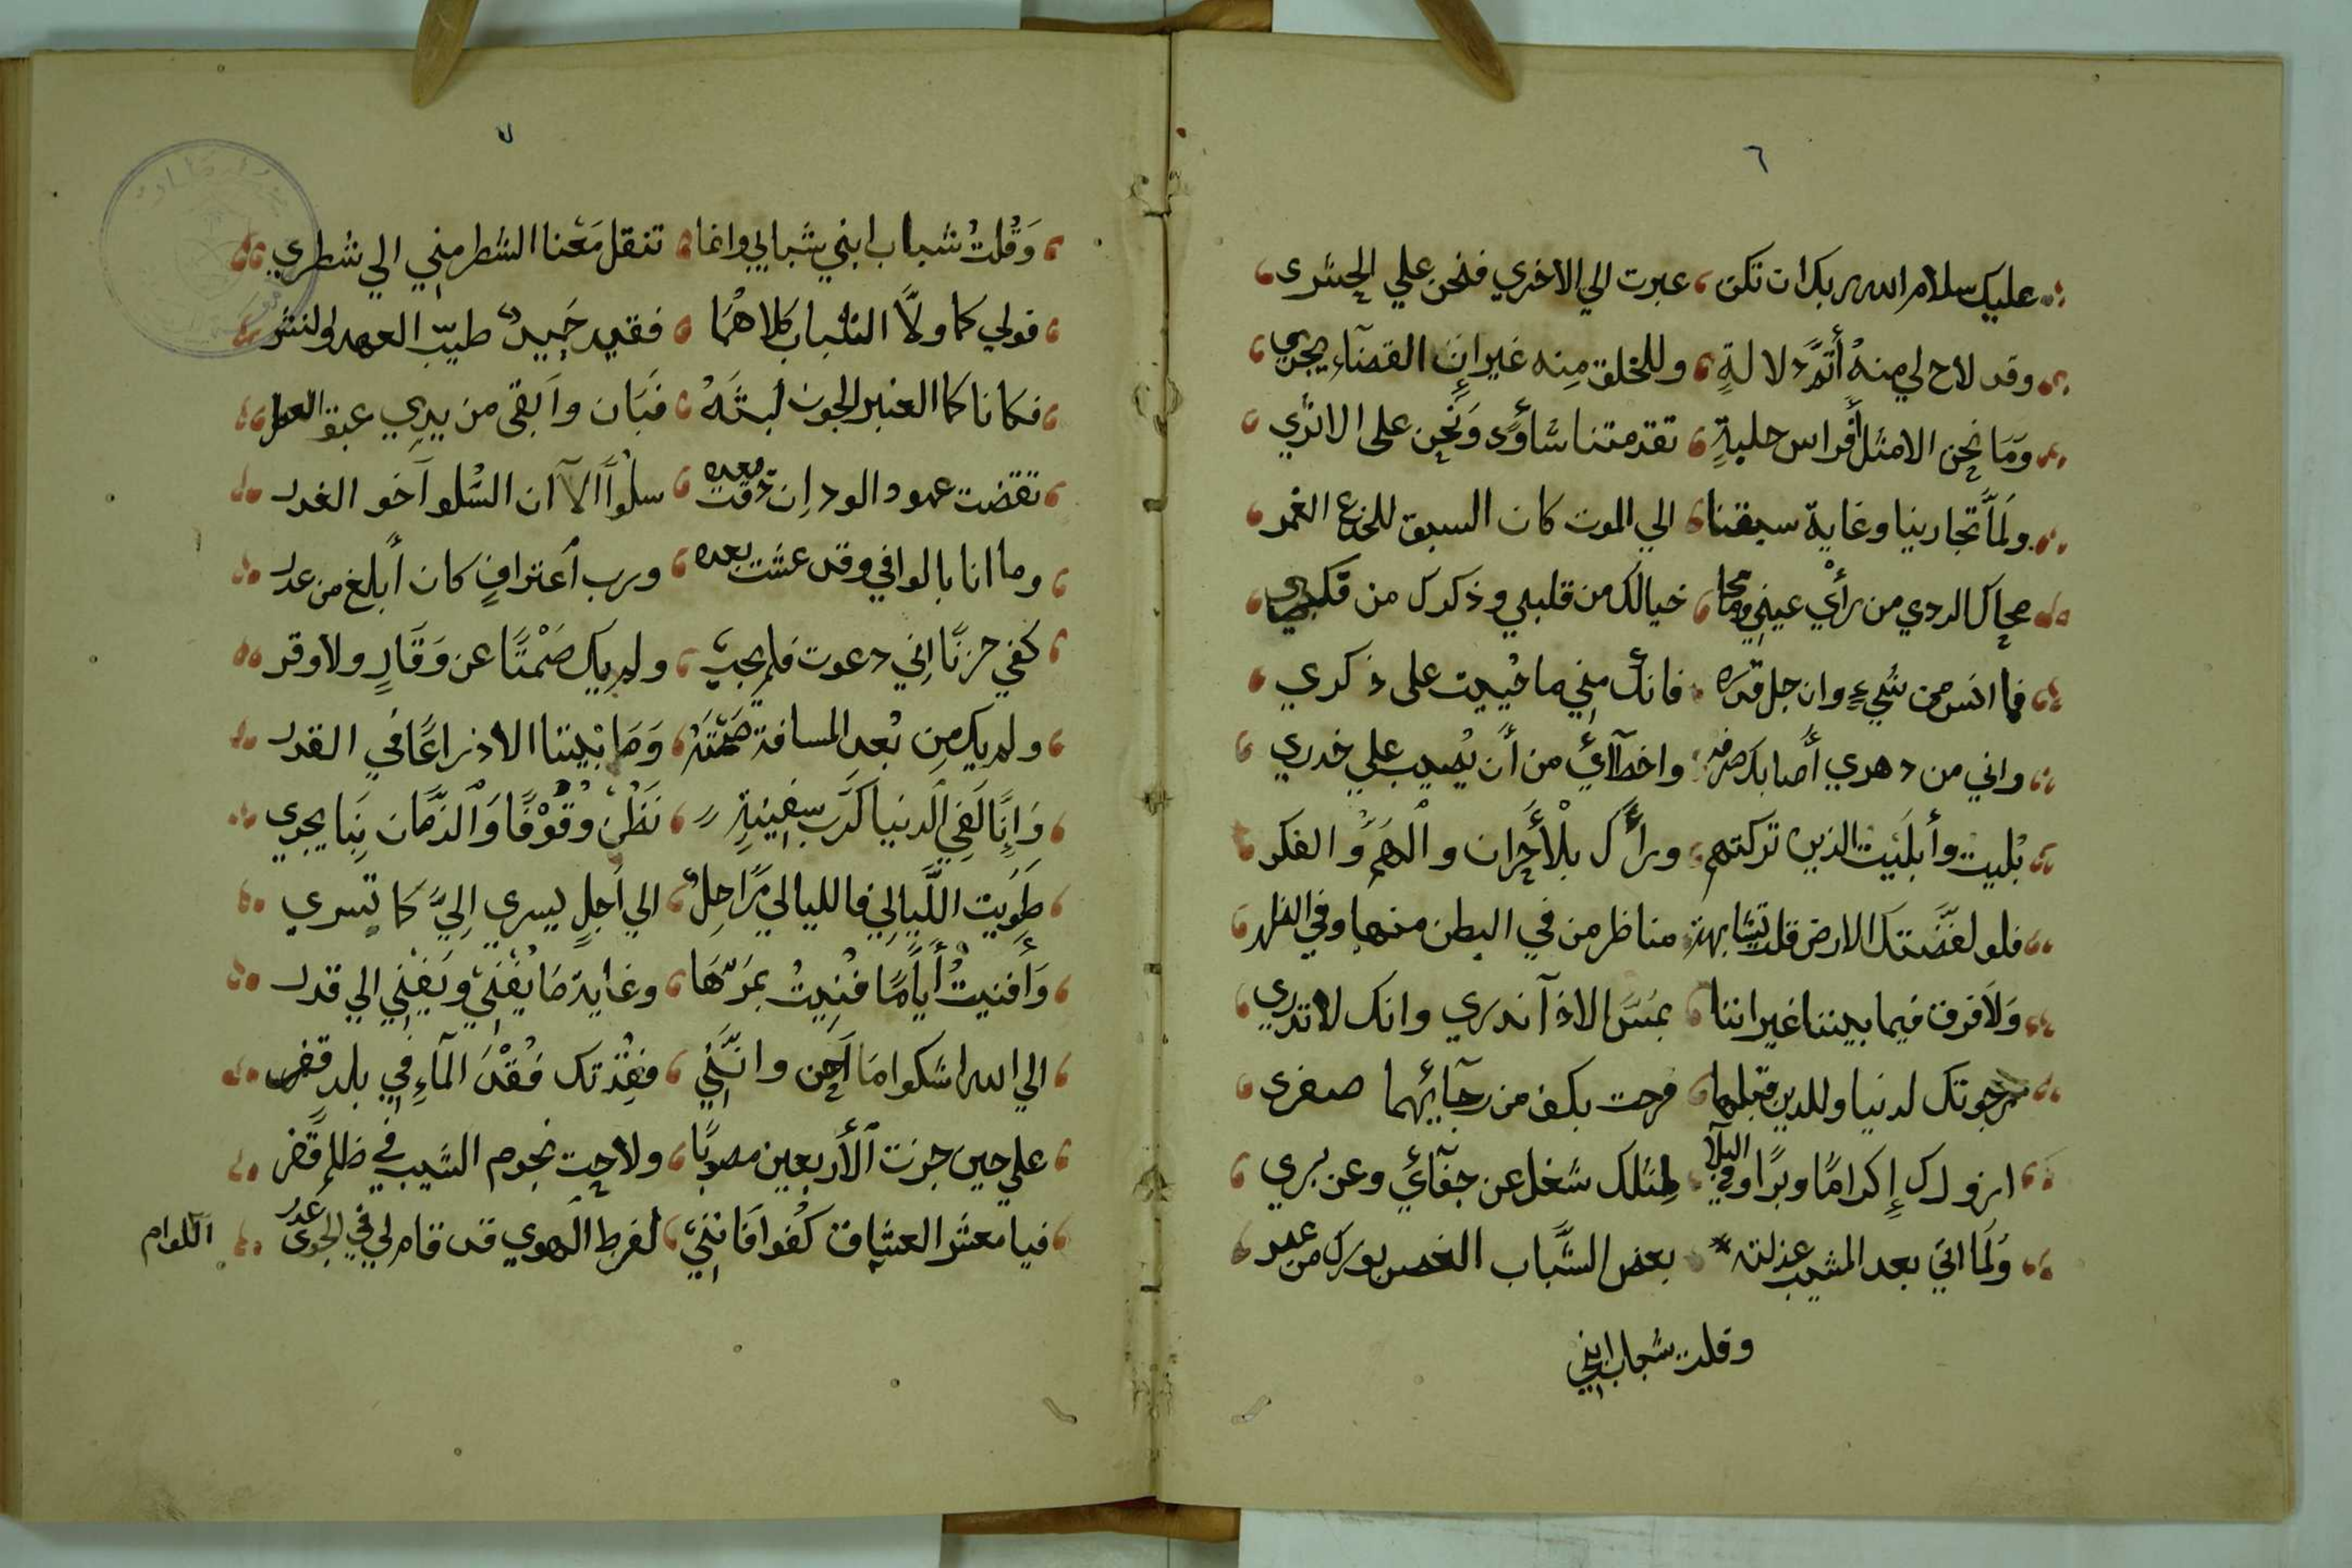 ٦
عليك سلام الله ربك ان تكن عبرت الي الاخري فنحن علي الجسرى
وقد لاح لي منهُ أَتَمَّ دلالةٍ وللخلق مِنه غير انَّ القضآءِ يجري
وَمَا نحن الا مثل أفراس حلبةٍ تقدمتنا شأوًا وَنحن على الاثرِي
ولَمَّا تجارينا وغاية سبقنا الي الموت كان السبق للجذع الغمر
محاك الردي من رأْي عيني وما محا خيالك من قلبي وذكرك من
فما انس من شيءٍ وان جل قدره فانكَ مني ما حييت على ذكري
واني من دهري أصابك صرفه واخطآئي من أن يُصيب علي خدري
بُليت وأبلَيت الذين تركتهم ورأَك بلْأحزان والهَم وَالفكر
فلو لفَضَتك الارض قلت تشابهة مناظر من في البطن منها وفي الظهر
وَلاَ فرق فيما بيننا غير اننا بمَسَّ الاذآ ندري وانك لا تدري
رجوتك لدنيا وللدين قبلها فرحت بكف من رجآئهما صفرى
ازورك إِكرامًا وبرًا وفي البلآ لمثلك شغل عن جفآئي وعن بري
وَلَما اتىَ بعد المشيب عذلته بعض الشَّباب الغصن بورك من عمر
وقلت شباب ابني
٧
وَقُلتُ شباب ابني شبابي وانما تنقل مَعْنا الشطر مني الي شطري
فولي كما ولَّا الشباب كلاهُما فقيد حَبِيبٌ طيّب العهد والنشر
فكانا كما العنبر الجون لبثَهُ فبَان وآبقىَ من يدِي عبق العطر
تقضت عهود الود اِن ذقت بعده سلُوآَ الآ ان السُلو آخو الغدر
وما انا بالوافي وقد عشت بعده ورب أعترافٍ كان أَبلغ من عدر
كفي حزنًا اِني دعوت فلم يجبْ ولم يك صَمْتًا عن وَقَارٍ ولا وقر
ولم يك مِن بُعد المسافة صَمْتَهُ وَمَا بَيْننا الا ذراعًا في القدر
وَإِنَّا لَفي الدنيا كرَكب سفِينةٍ نَظُنَّ وقُوْفًا وَالزَّمَان بِنَا يجري
طَوِيت اللَّيالِي فالليالي مَرَاحِلٌ الي أجلٍ يسري الِيَّ كما تسري
وَأَفنيتُ أَيَامًا فُنِيتُ بمَرّهَا وغاية مَا يُفْنيْ ويَفْنِي الي قدر
الي الله اشكوا مَا أُجن وانَّنِي فقِدْتك فُقْدَ المآءِ في بلد قفر
علي حين جزت الأربعين مصوبًا ولاحت نجوم الشيب في ظلم قَفر
فيا معشر العشاق كُفوا فَانني لفرط الهوي قد قام لي في الجوى عدر
اللوام